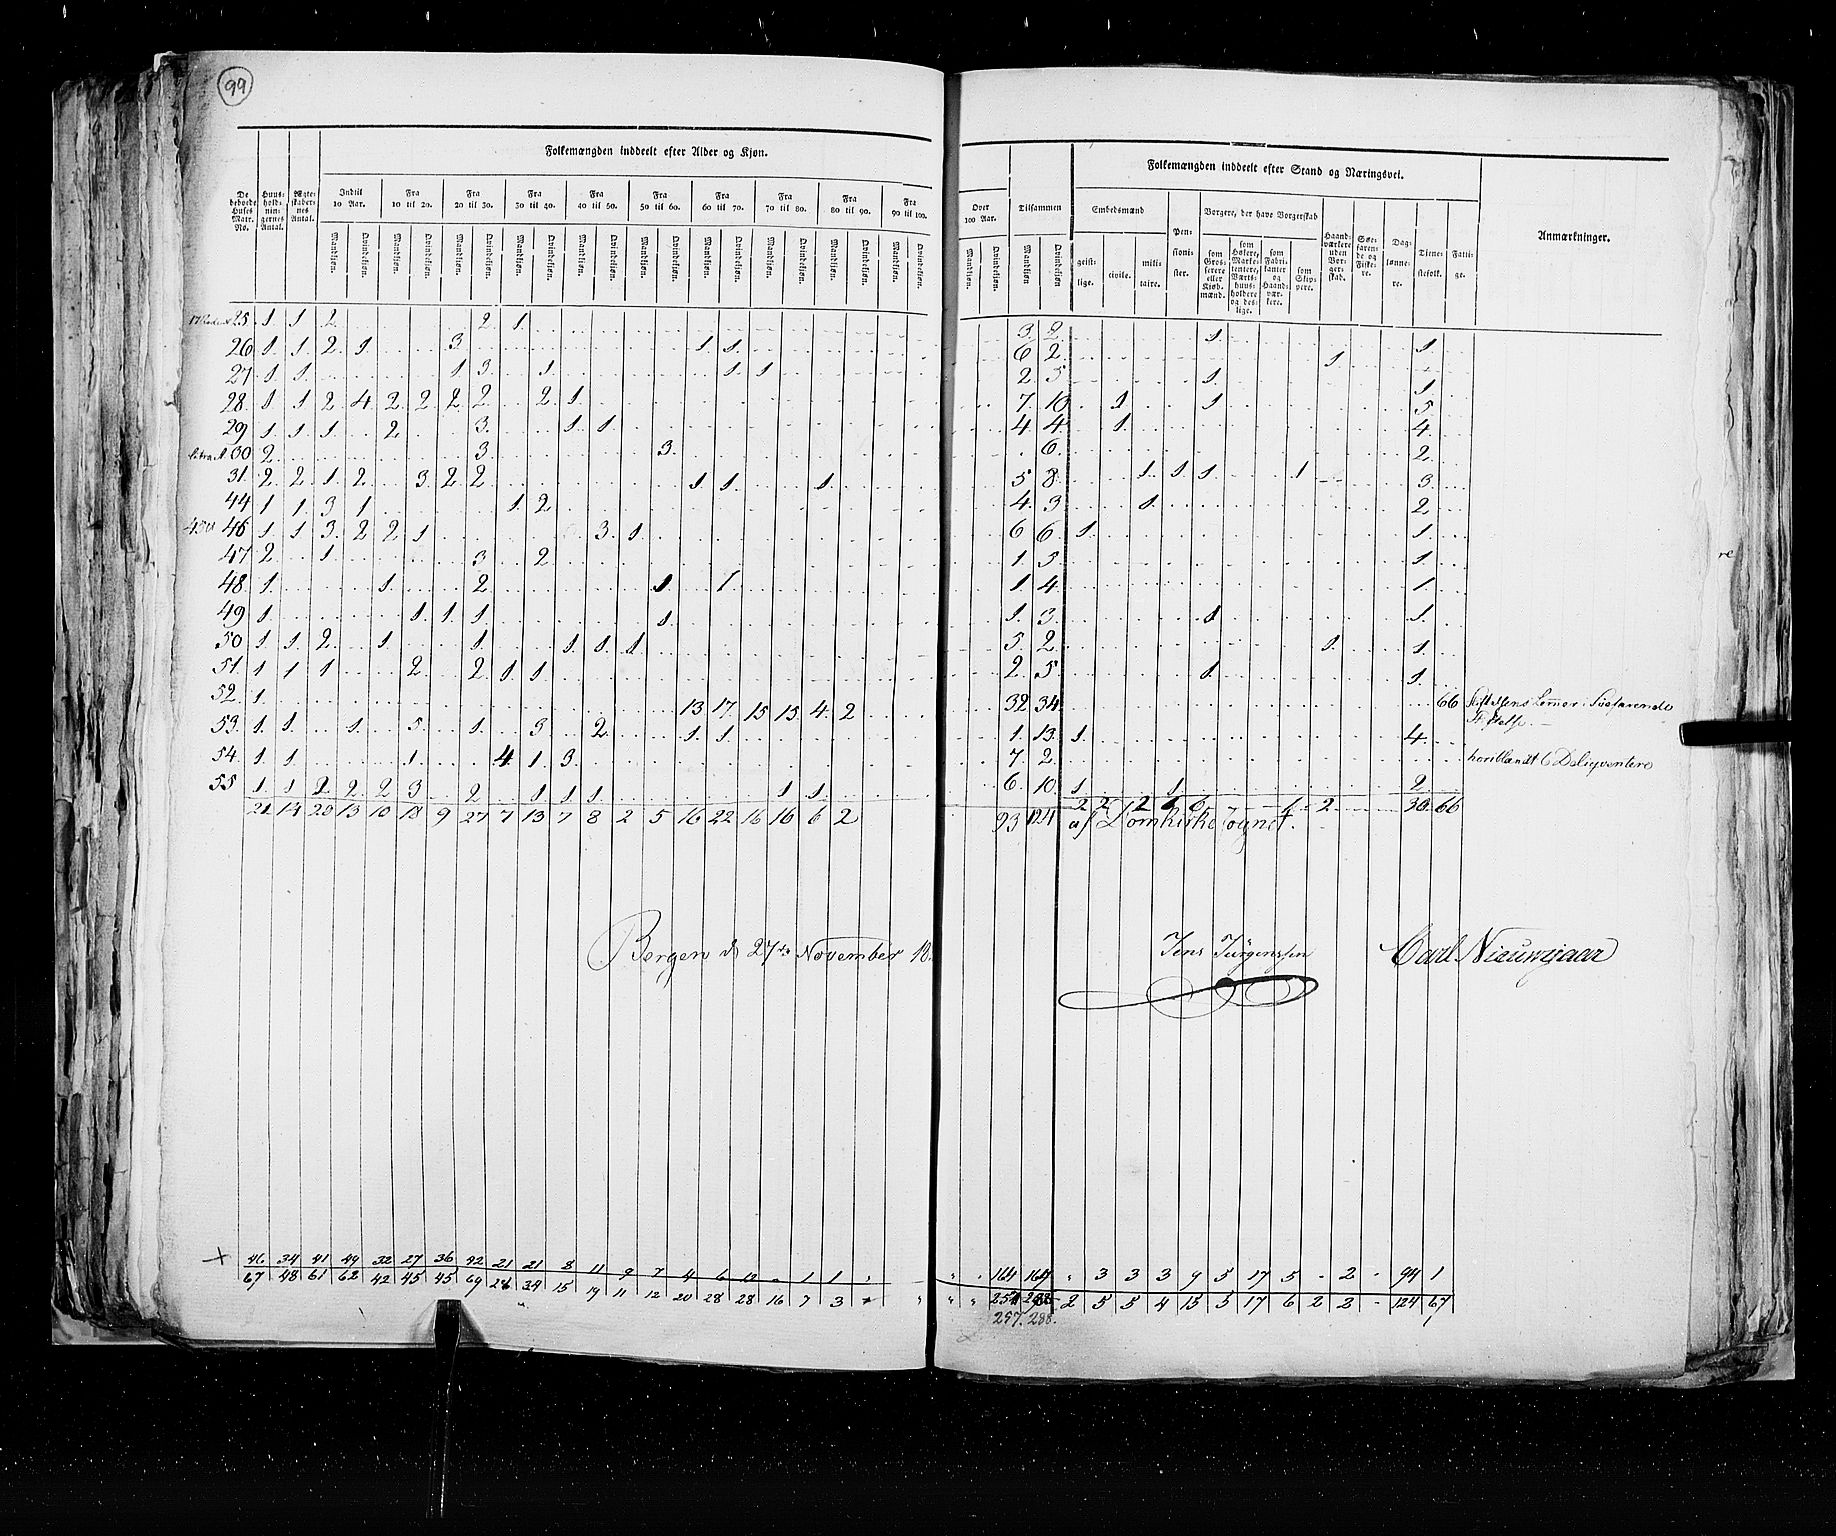 99
Folkemængden inddeelt efter Alder og Kjøn.
De beboede Huses Matr. No.
Huus-holdnin-gernes Antal.
Ægte-skaber-nes Antal.
Indtil 10 Aar.
Fra 10 til 20.
Fra 20 til 30.
Fra 30 til 40.
Fra 40 til 50.
Fra 50 til 60.
Fra 60 til 70.
Fra 70 til 80.
Fra 80 til 90.
Fra 90 til 100.
Over 100 Aar.
Tilsammen
Mandkjøn. Qvindekjøn. Mandkjøn. Qvindekjøn. Mandkjøn. Qvindekjøn. Mandkjøn. Qvindekjøn. Mandkjøn. Qvindekjøn. Mandkjøn. Qvindekjøn. Mandkjøn. Qvindekjøn. Mandkjøn. Qvindekjøn. Mandkjøn. Qvindekjøn. Mandkjøn. Qvindekjøn. Mandkjøn. Qvindekjøn. Mandkjøn Qvindekjøn.
Folkemængden inddeelt efter Stand og Næringsvei.
Embedsmænd
geist-lige.
civile.
mili-taire.
Pen-sioni-ster.
Borgere, der have Borgerskab
som Gros-serere eller Kjøb-mænd.
som Høkere, Marke-tentere, Værts-huus-holdere og des-lige.
som Fabri-kanter og Haand-vær-kere.
som Skip-pere.
Haand-værkere uden Bor-ger-skab.
Søe-faren-de og Fiske-re.
Dag-lønne-re.
Tjene-stefolk.
Fatti-ge.
Anmærkninger.
25. 1 1 2 2 1 3. 2. 1 1
26 1. 1. 2. 1 3 1. 1 6 2. 1
27 1 1 1. 3. 1 1. 1 2. 5 1. 1
28. 1 1 2 4 2 2 2 2 2 1 7. 10 1 1 5
29 1 1 1 2 3 1 1 4 4 1. 4
30 2 3 3. 6. 2
31. 2 2 1 2 3 2 2 1 1. 1 5 8. 1 1 1 1 3
44 1 1 3 1 1 2 4. 3 1. 2
46 1 1 3. 2 2 1 3. 1 6 6 1. 1.
47 2 1 3 2 1. 5 1.
48. 1. 1 2 1 1 1 4. 1
49 1. 1 1 1 1. 1. 3 1 1.
50 1 1 2 1 1 1 1 1 5 2 1. 1.
51. 1 1 1 2 2 1 1 2. 5 1 1
52. 1 13 17 15 15. 4. 2 32 34 66
53. 1. 1 1. 5 1. 3 2 1 1 1. 13. 1. 4
54. 1. 1 1. 4. 1 3 7. 2
hvoriblandt 6 Deliqventere
55 1 1 2. 2. 2 3 2 1 1 1. 1 1. 6. 10. 1 1 2
21 14 20 13 10 18 9 27 7 13 7 8 2 5 16 22 16 16 6 2 93 124 2 2 2 1 2 30 66
af Domkirke Sognet.
Bergen d 27de November 18
Jens Jürgenssen
Carl Nieuwejaar
46 34 41 49 32 27 36 42 21 21 8 11 9 7 4 6 12 1 1 164 164 3 3 3 9 5 17 5 2 94 1
67 48 61 62 42 45 45 69 28 34 15 19 11 12 20 28 28 16 7 3 2 5 5 4 15 5 17 6 2 2 124 67
257. 288.